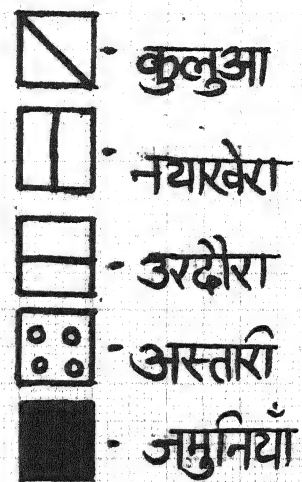 कुलुआ
नयाखेरा
उरदौरा
अस्तारी
जमुनियाँ